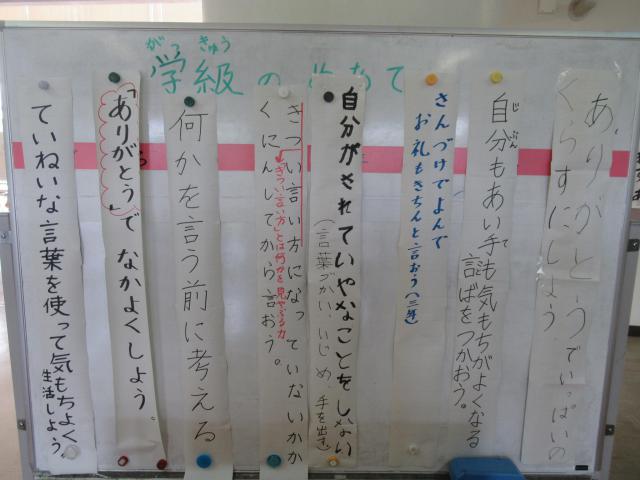 学級のめあて
がっきゅう
ありがとうでいっぱいの
くらすにしよう
自分もあい手も気もちがよくなる
じぶん
て
言ばをつかおう。
さんづけでよんで
お礼もきちんと言おう(三年)
自分がされていやなことをしない
(言葉づかい、いじめ、手を出す)
きつい言い方になっていないかか
くにんしてから言おう。
何かを言う前に考える
「ありがとう」で なかよくしよう。
ていねいな言葉を使って気もちよく
生活しよう。